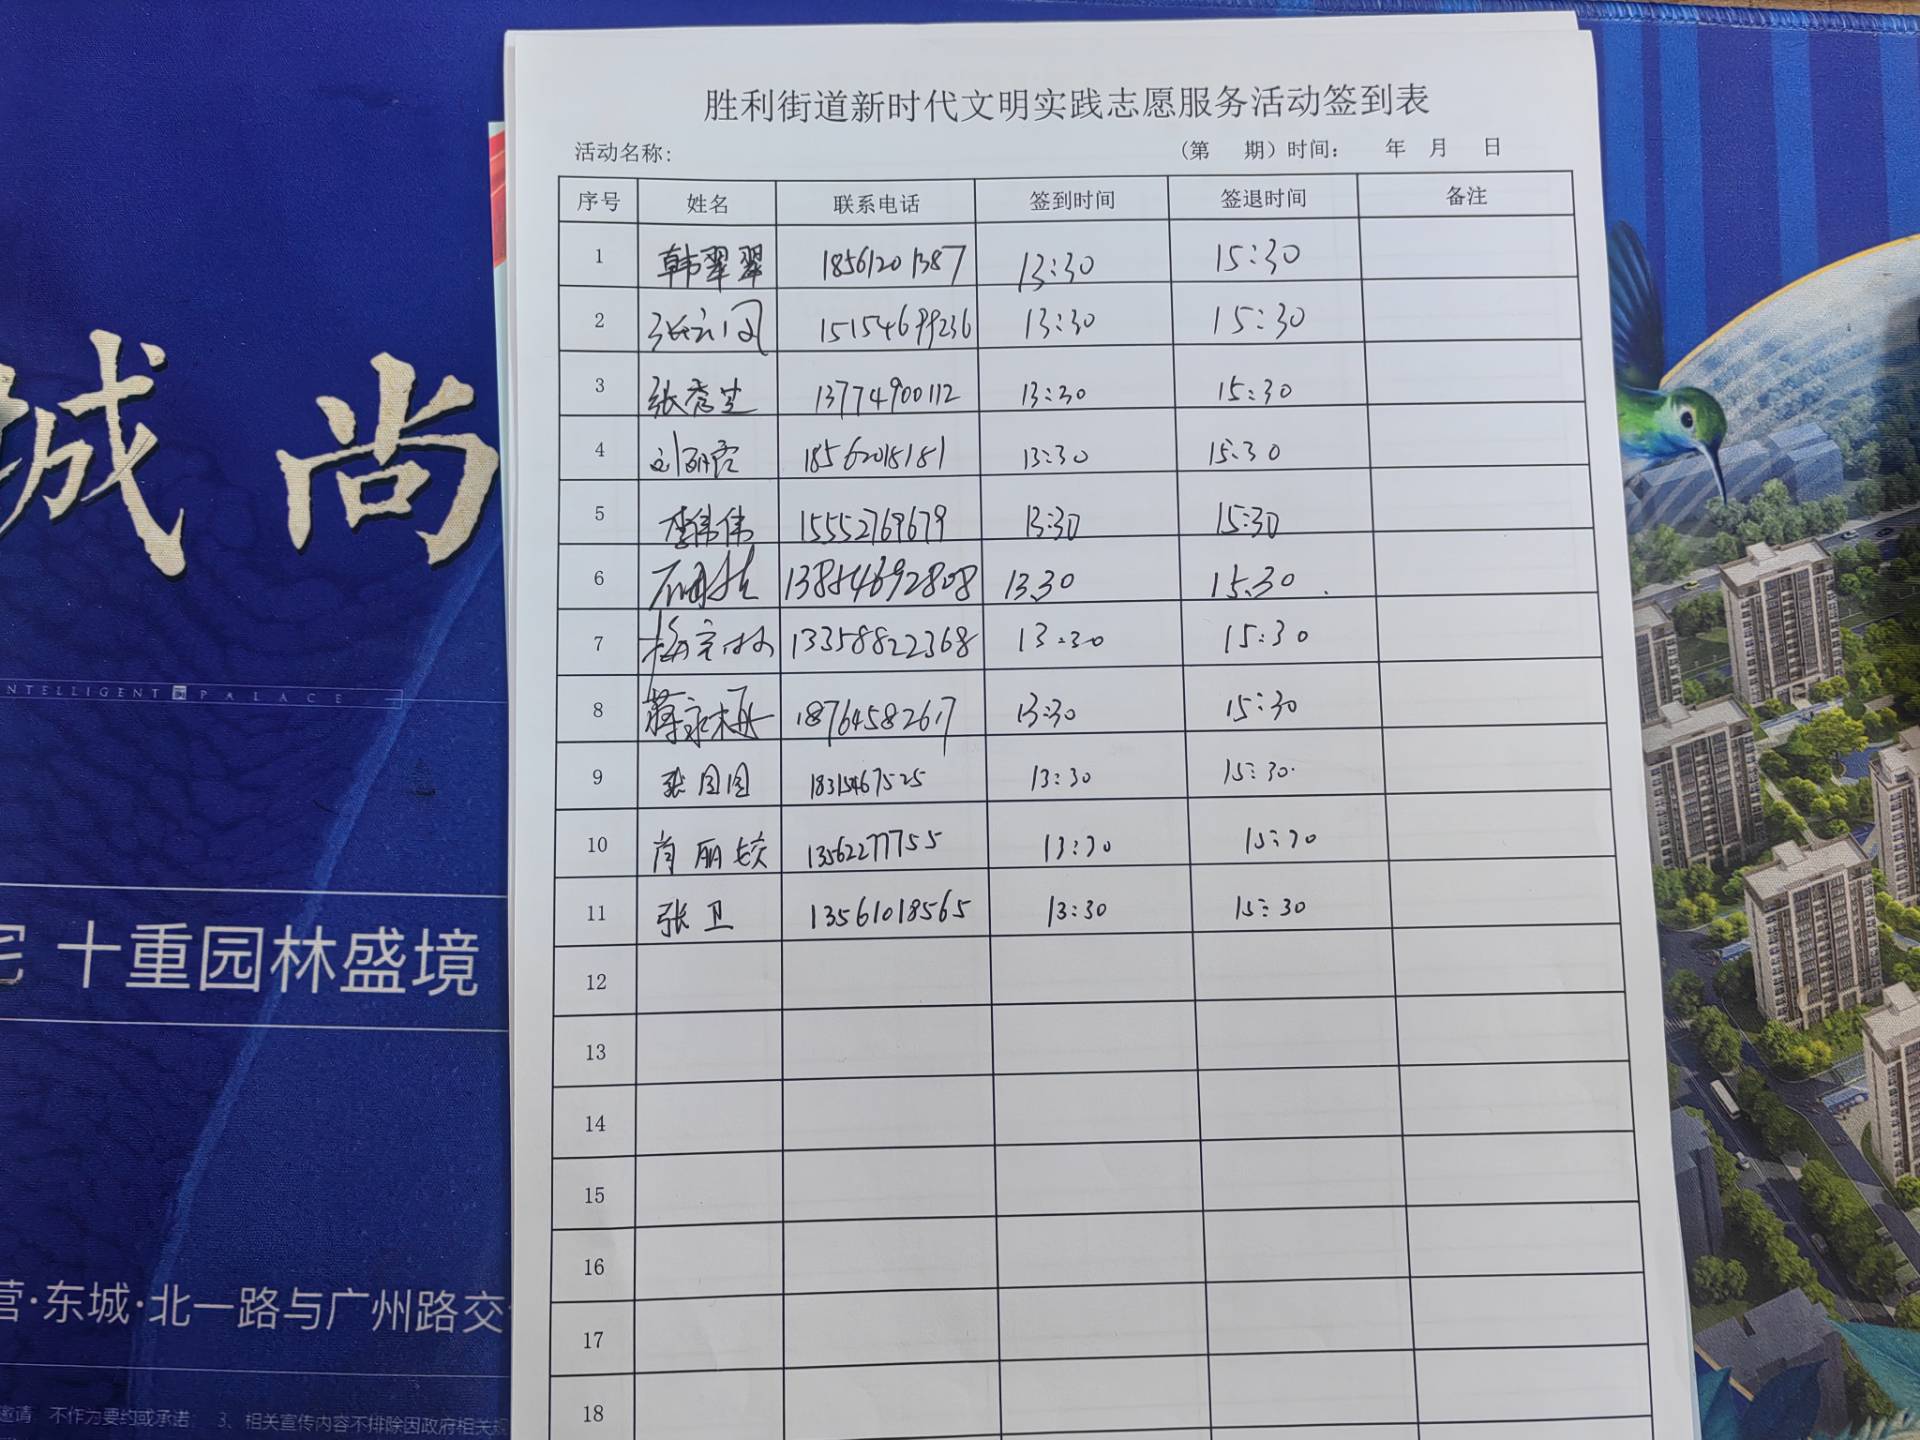 胜利街道新时代文明实践志愿服务活动签到表
活动名称: （第 期）时间： 年 月 日
序号 姓名 联系电话 签到时间 签退时间 备注
1 韩翠翠 18561201387 13:30 15:30
2 张云凤 15154699236 13:30 15:30
3 张秀芝 13774900112 13:30 15:30
4 刘丽霞 18562018181 13:30 15:30
5 李伟伟 15552769679 13:30 15:30
6 13854692808 13.30 15.30
7 13358822368 13:30 15:30
8 蒋永梅 18764582617 13:30 15:30
9 张团团 18315467525 13:30 15:30
10 肖丽姣 13562277755 13:30 15:30
11 张卫 13561018565 13:30 15:30
12
13
14
15
16
17
18
城尚
INTELLIGENT PALACE
宅 十重园林盛境
营·东城·北一路与广州路交
邀请 不作为要约或承诺; 3、相关宣传内容不排除因政府相关